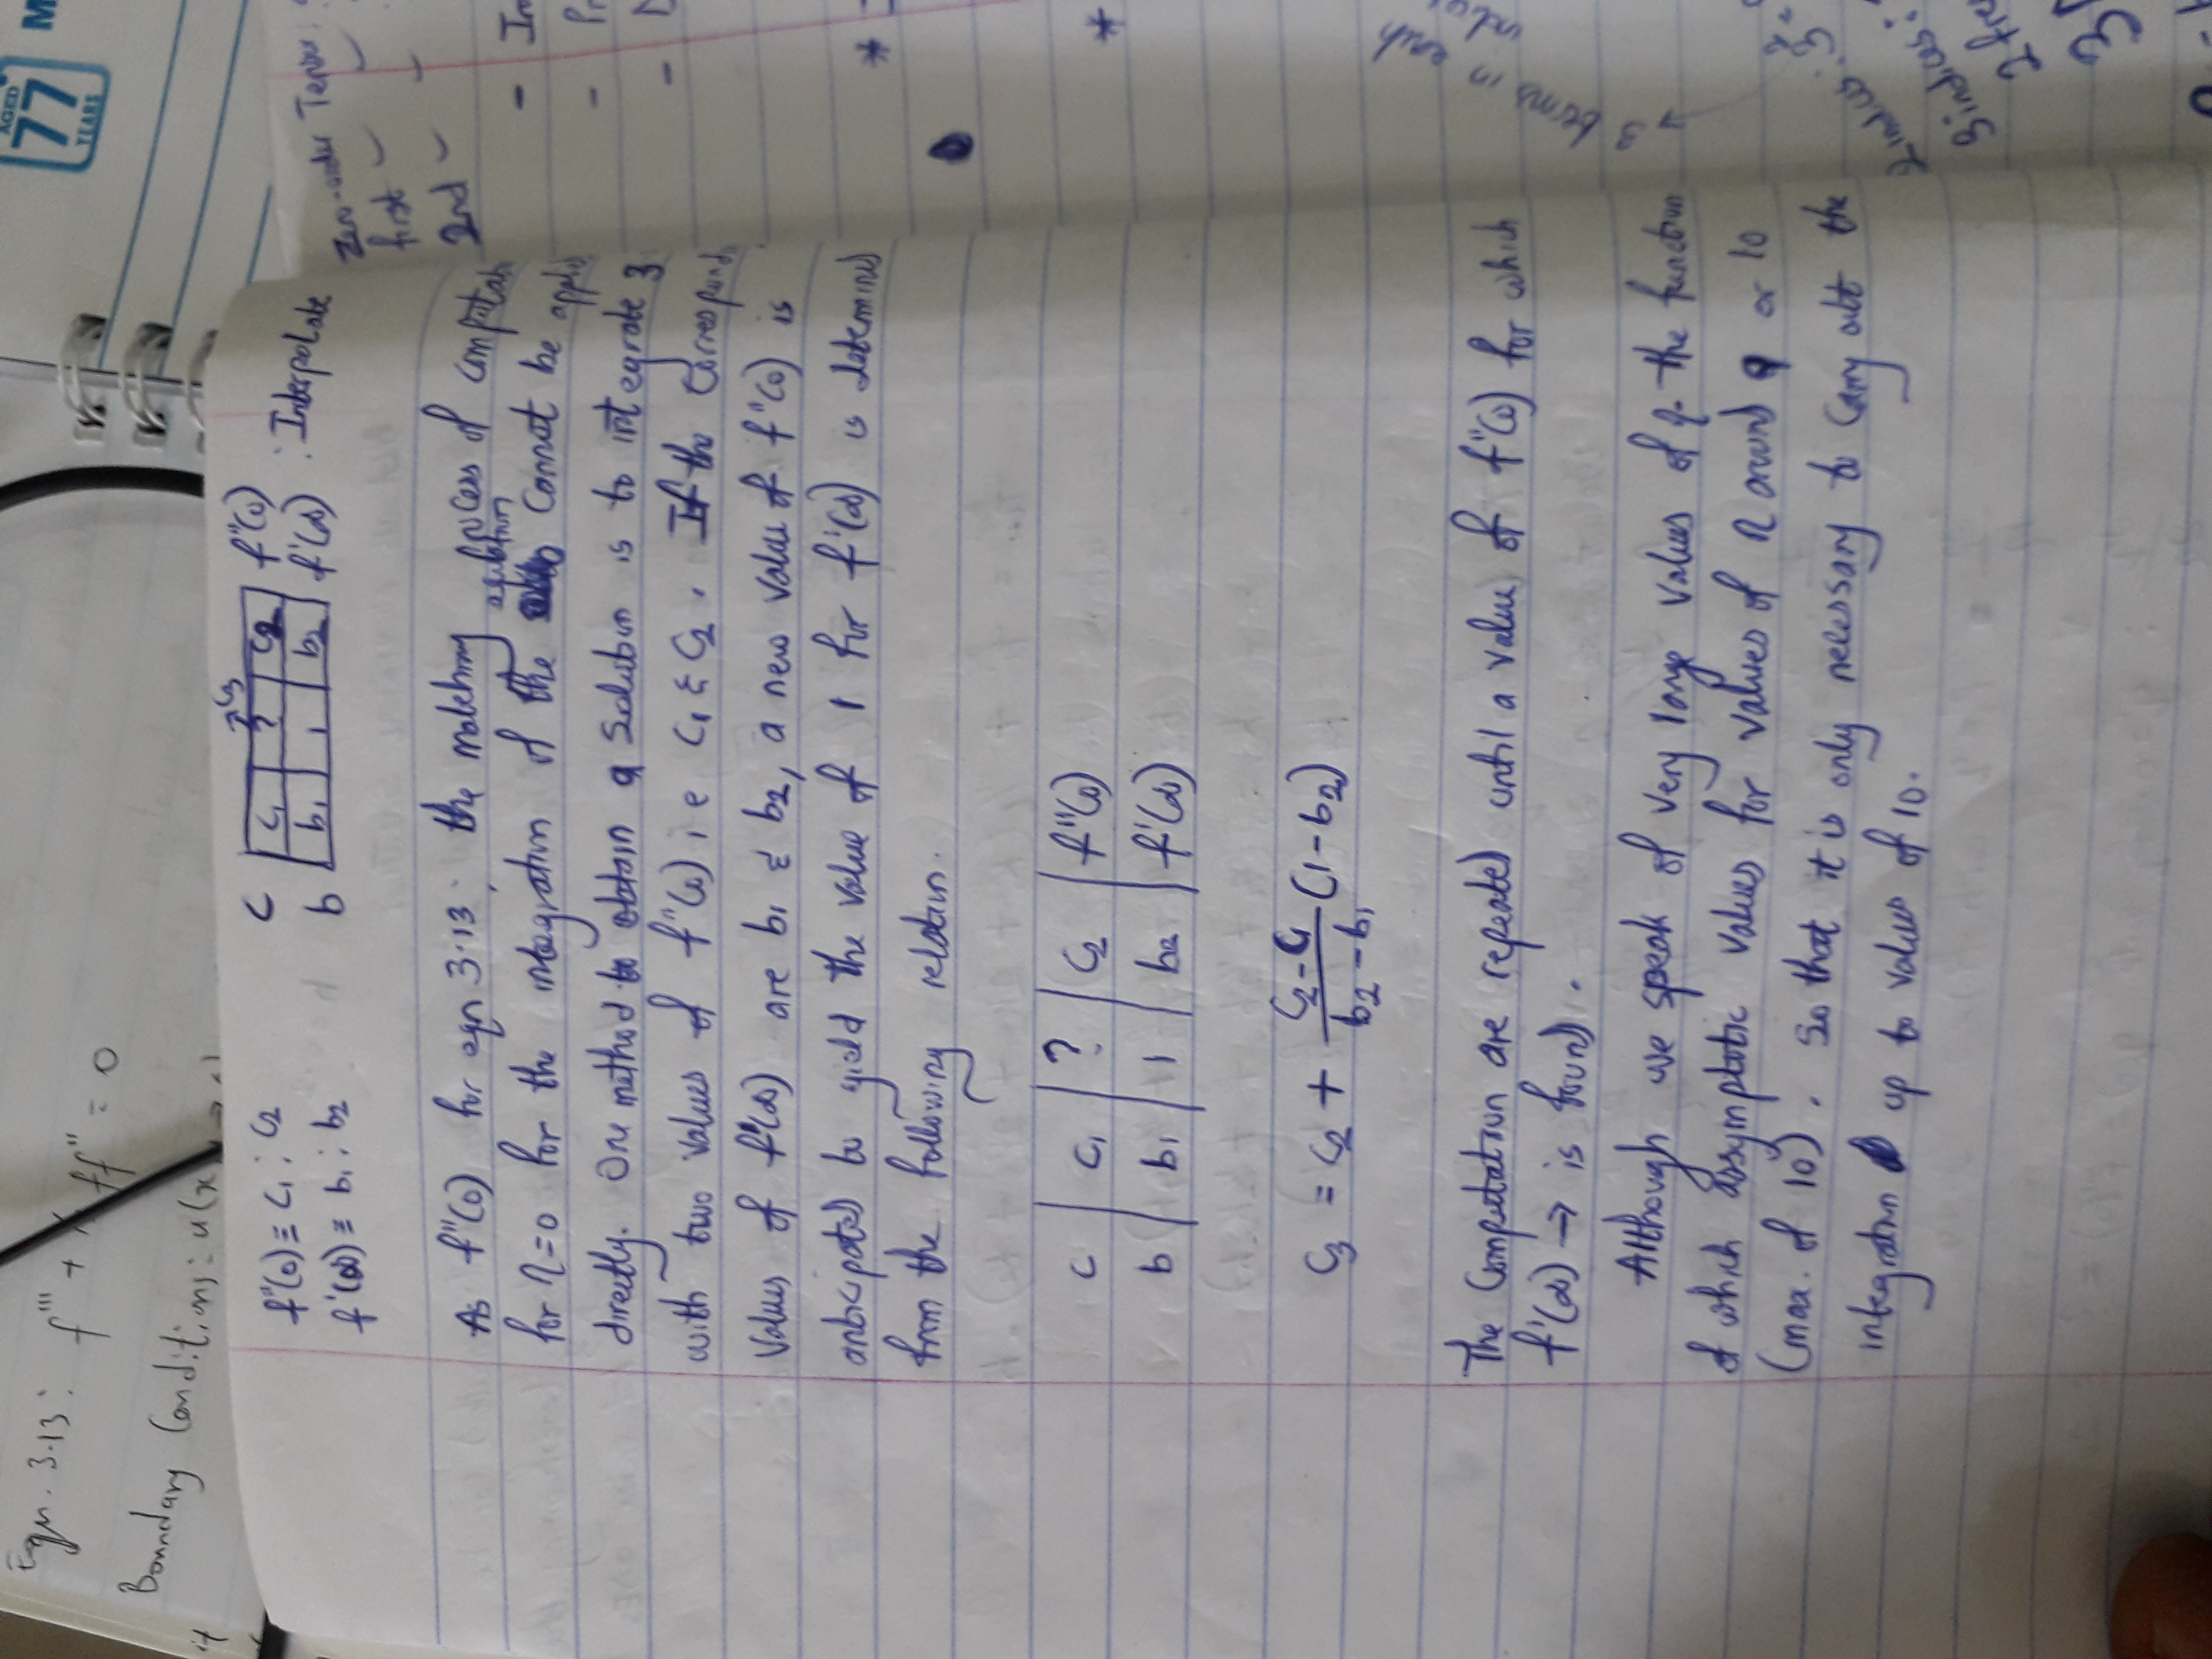 Eqn. 3.13: f''' + ff'' = 0
Boundary Conditions: u(x
AGED
77
YEARS
M
f''(0) ≡ c₁ ; c₂
f'(∞) ≡ b₁ ; b₂
→ c₃
c | c₁ | ? | c₂ | f''(0)
b | b₁ | 1 | b₂ | f'(∞) : Interpolate
As f''(0) for eqn 3.13; the matching process of computat
equation
for η=0 for the integration of the cannot be applied
directly. One method to obtain a solution is to integrate 3
with two values of f''(0) i e c₁ & c₂. If the correspond
values of f'(∞) are b₁ & b₂, a new value of f''(0) is
anticipated to yield the value of 1 for f'(∞) is determined
from the following relation.
c | c₁ | ? | c₂ | f''(0)
b | b₁ | 1 | b₂ | f'(∞)
c₃ = c₂ + (c₂-c₁)/(b₂-b₁) (1-b₂)
The Computation are repeated until a value of f''(0) for which
f'(∞) → is found.
Although we speak of very large values of η the function
of which assymptotic values for values of η around 9 or 10
(max. of 10). So that it is only necessary to carry out the
integration up to values of 10.
Zero-order Tensor:
first
2nd
- In
- Pr
*
*
→ 3 terms in each
2 indices: 3² =
3 indices:
2 fre
3